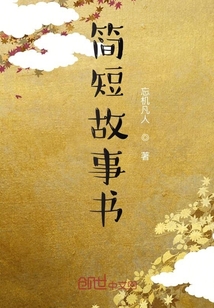 简短故事书
忘机凡人 ◎ 著
创世中文网